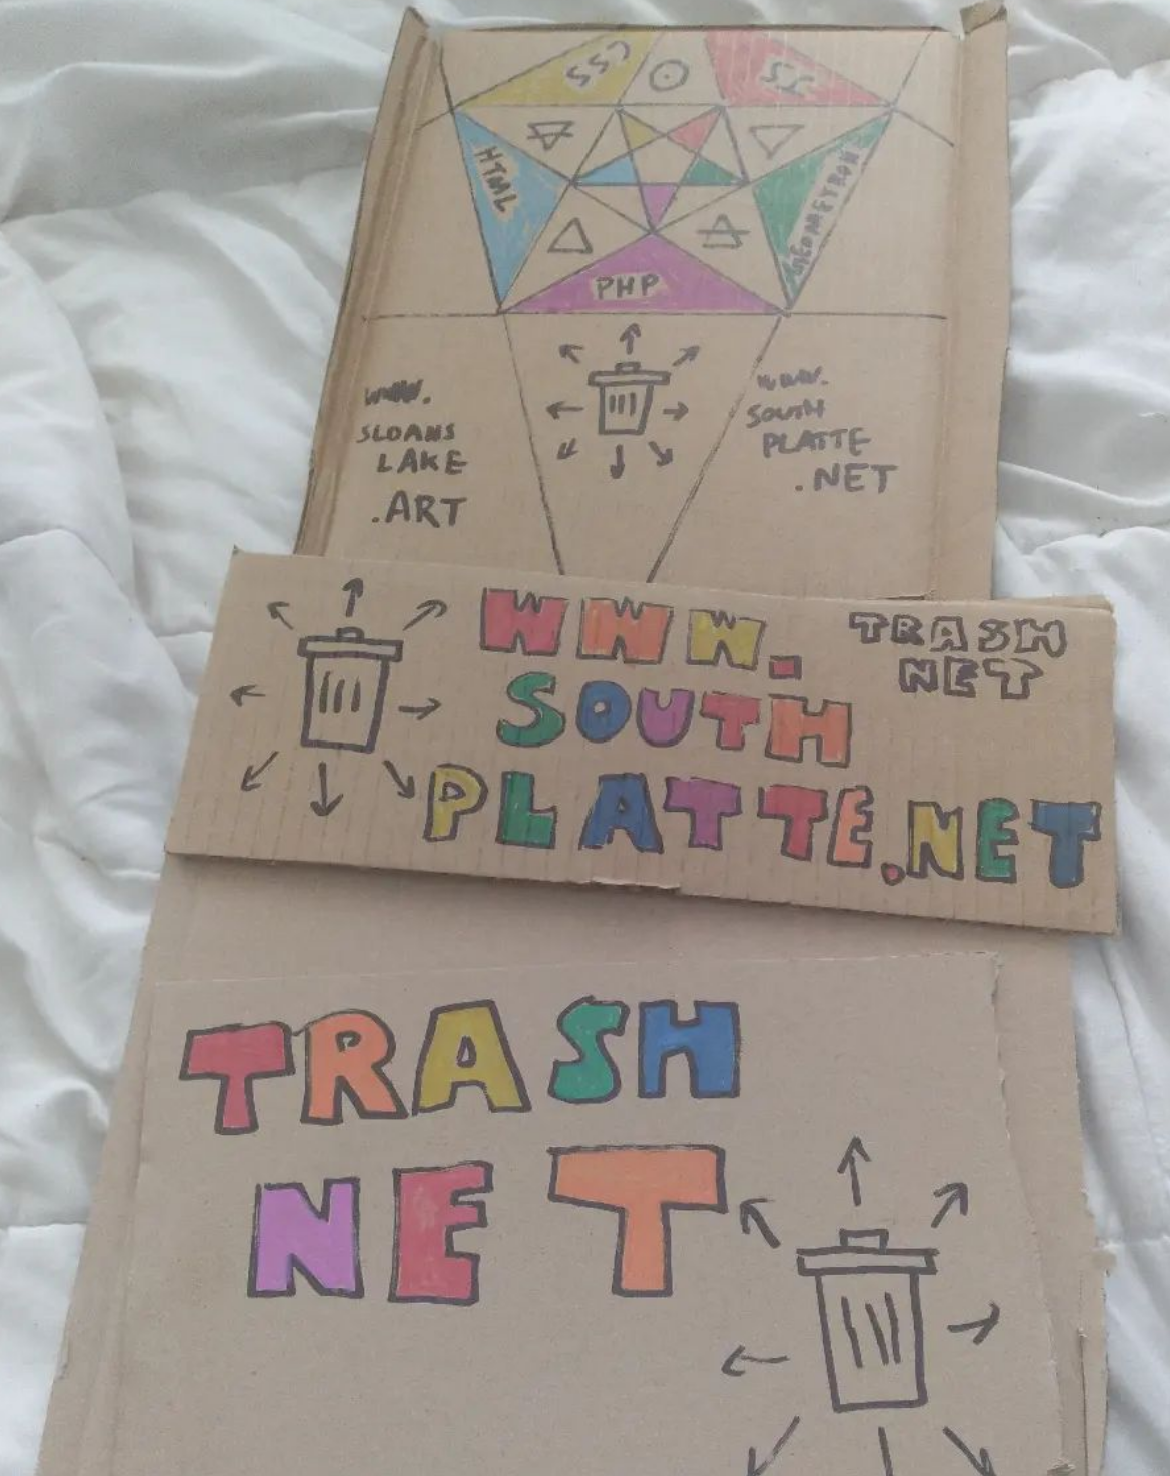 CSS
JS
HTML
GEOMETRON
PHP
www.
SLOANS
LAKE
.ART
www.
SOUTH
PLATTE
.NET
WWW.
SOUTH
PLATTE.NET
TRASH
NET
TRASH
NET